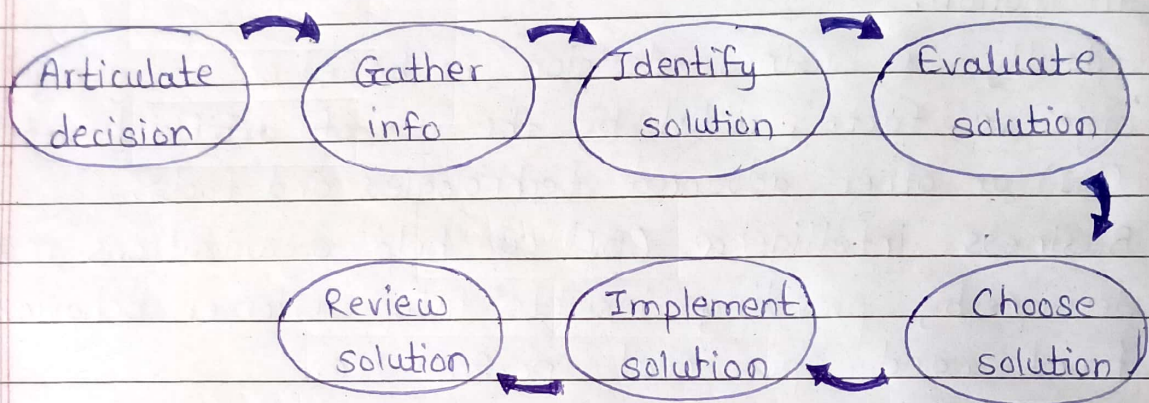 Articulate
decision
Gather
info
Identify
solution
Evaluate
solution
Choose
solution
Implement
solution
Review
solution